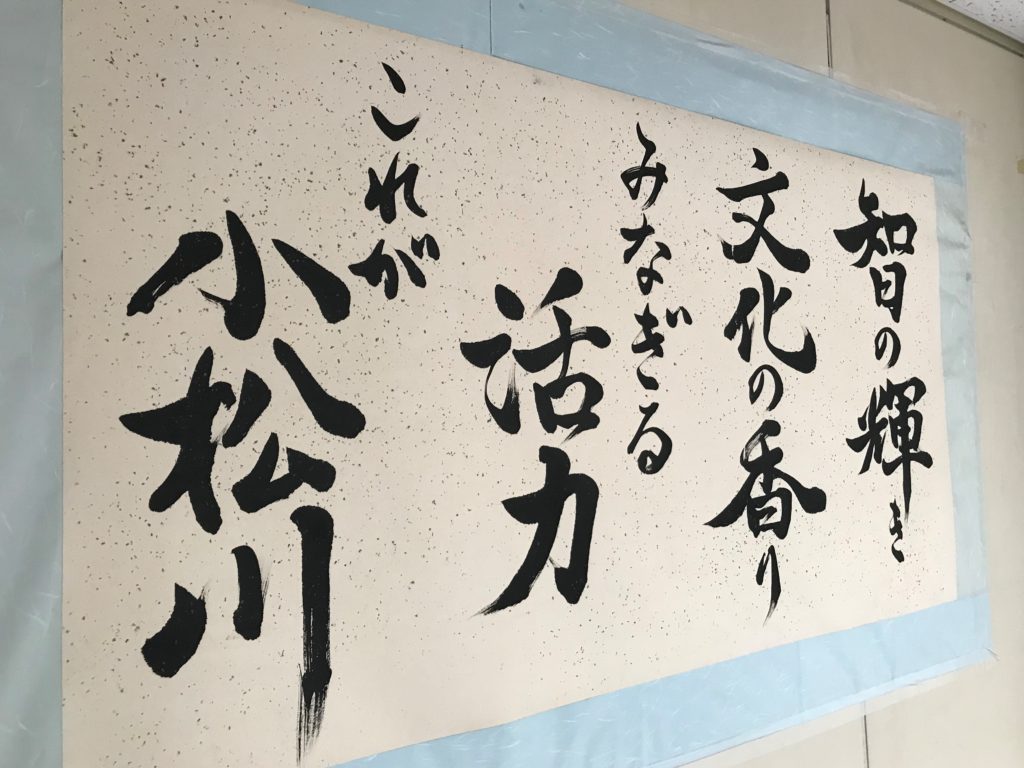 智の輝き
文化の香り
みなぎる
活力
これが
小松川